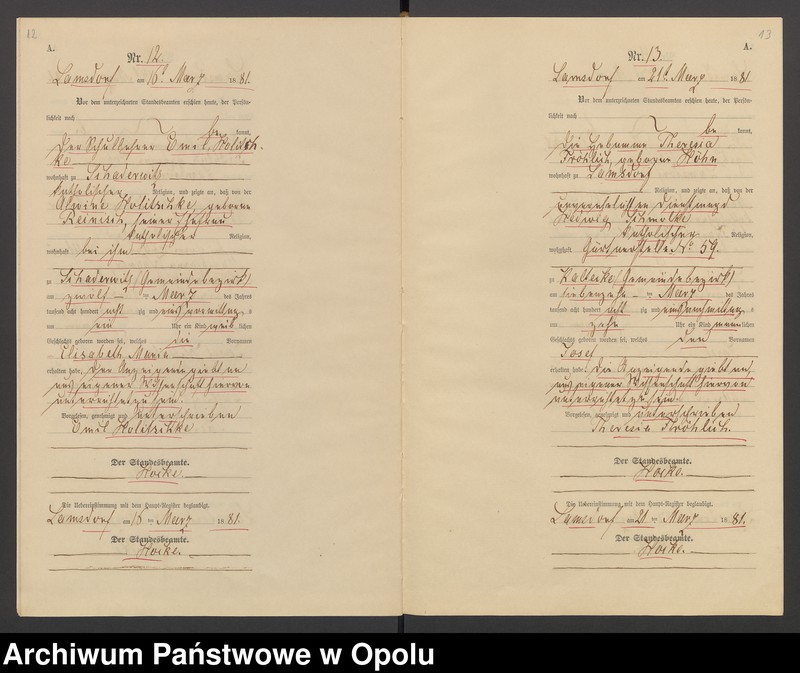 12
A.
Nr. 12.
Lamsdorf am 16t März 1881.
Vor dem unterzeichneten Standesbeamten erschien heute, der Persön-
lichkeit nach
be kannt,
der Schullehrer Emil Holitsch-
ke
wohnhaft zu Schaderwitz
katholischer Religion, und zeigte an, daß von der
Alwine Holitschke, geborene
seiner Ehefrau
katholischer Religion,
wohnhaft bei ihm
zu Schaderwitz (Gemeindebezirk)
am zwölf ten März des Jahres
tausend acht hundert acht zig und eins Vormittag s
um ein Uhr ein Kind weib lichen
Geschlechts geboren worden sei, welches die Vornamen
Elisabeth, Maria
erhalten habe, Der Anzeigende giebt an
aus eigener Wissenschaft hiervon
unterrichtet zu sein.
Vorgelesen, genehmigt und unterschrieben
Emil Holitschke
Der Standesbeamte.
Hocke.
Die Uebereinstimmung mit dem Haupt-Register beglaubigt.
Lamsdorf am 16 ten März 1881.
Der Standesbeamte.
Hocke.
13
A.
Nr. 13.
Lamsdorf am 21t März 1881.
Vor dem unterzeichneten Standesbeamten erschien heute, der Persön-
lichkeit nach
be kannt,
die Hebamme Theresia
Fröhlich, geborene Höhn
wohnhaft zu Lamsdorf
Religion, und zeigte an, daß von der
Dienstmagd
Hedwig Schmolke
katholischer Religion,
wohnhaft Gärtnerstelle No 59.
zu Kaltecke (Gemeindebezirk)
am siebenzehn ten März des Jahres
tausend acht hundert acht zig und eins Vormittag s
um zehn Uhr ein Kind männ lichen
Geschlechts geboren worden sei, welches den Vornamen
Josef
erhalten habe. Die Anzeigende giebt an,
aus eigener Wissenschaft hiervon
unterrichtet zu sein.
Vorgelesen, genehmigt und unterschrieben
Theresia Fröhlich.
Der Standesbeamte.
Hocke.
Die Uebereinstimmung mit dem Haupt-Register beglaubigt.
Lamsdorf am 21 ten März 1881.
Der Standesbeamte.
Hocke.
Archiwum Państwowe w Opolu